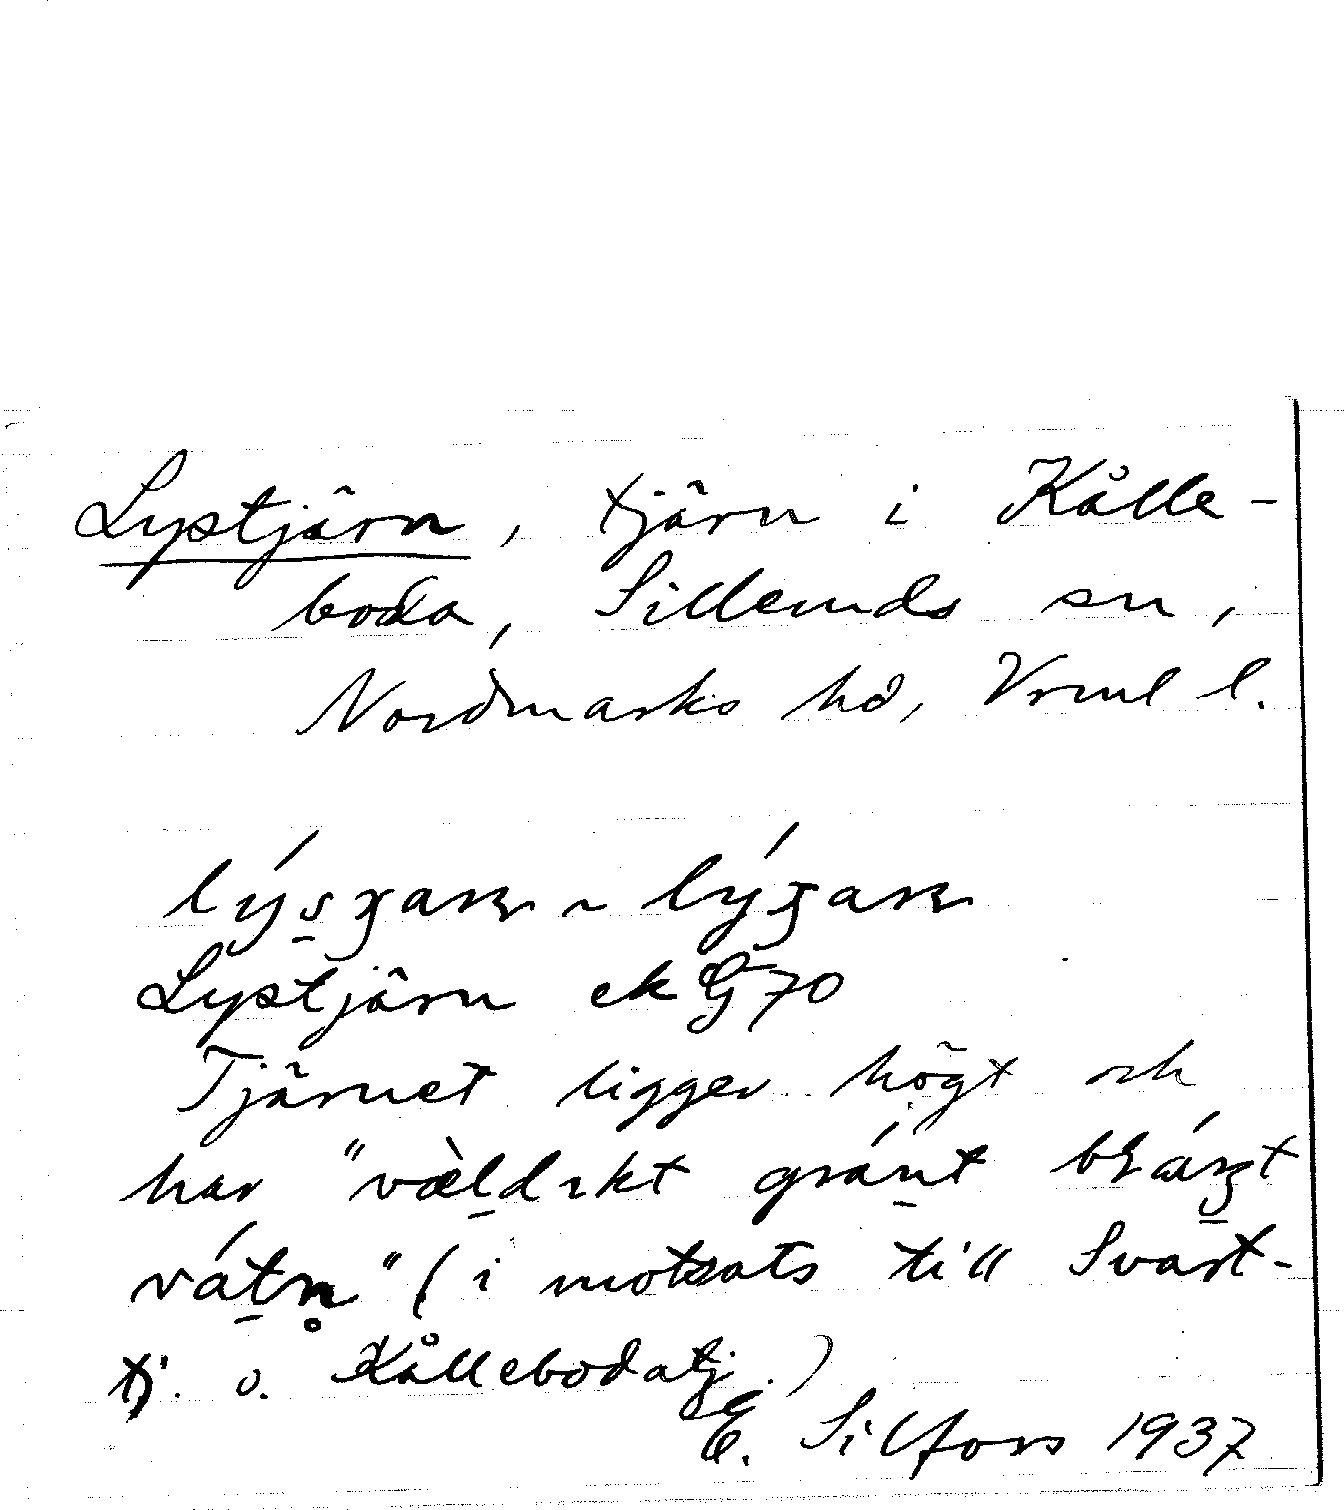 Lystjärn, tjärn i Kålle-
boda, Silleruds sn,
Nordmarks hd, Vrml l.
Lystjärn ek G 70
Tjärnet ligger högt och
har "vældıkt gránt
vátn̥" (i motsats till Svart-
tj. o. Kållebodatj.)
E. Silfors 1937